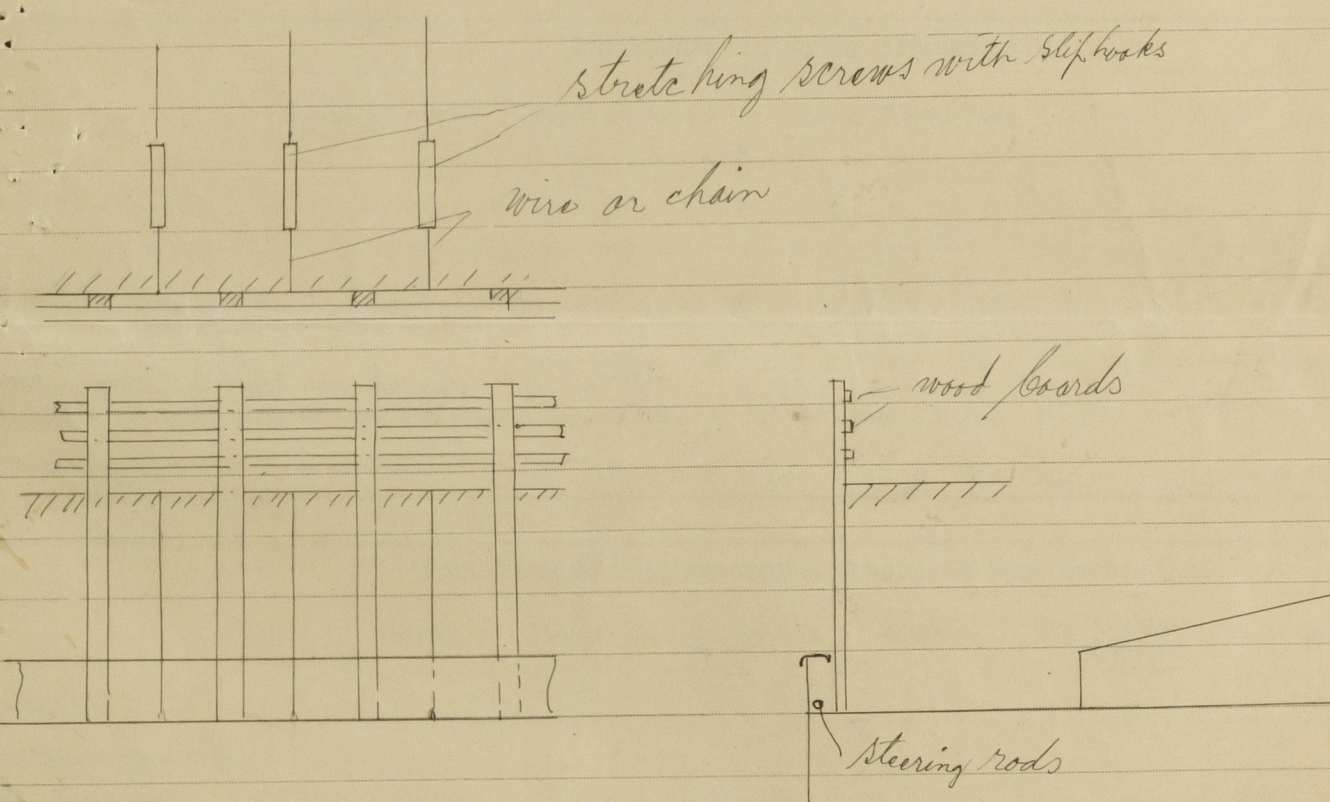 stretching screws with sliphooks
wire or chain
wood boards
steering rods